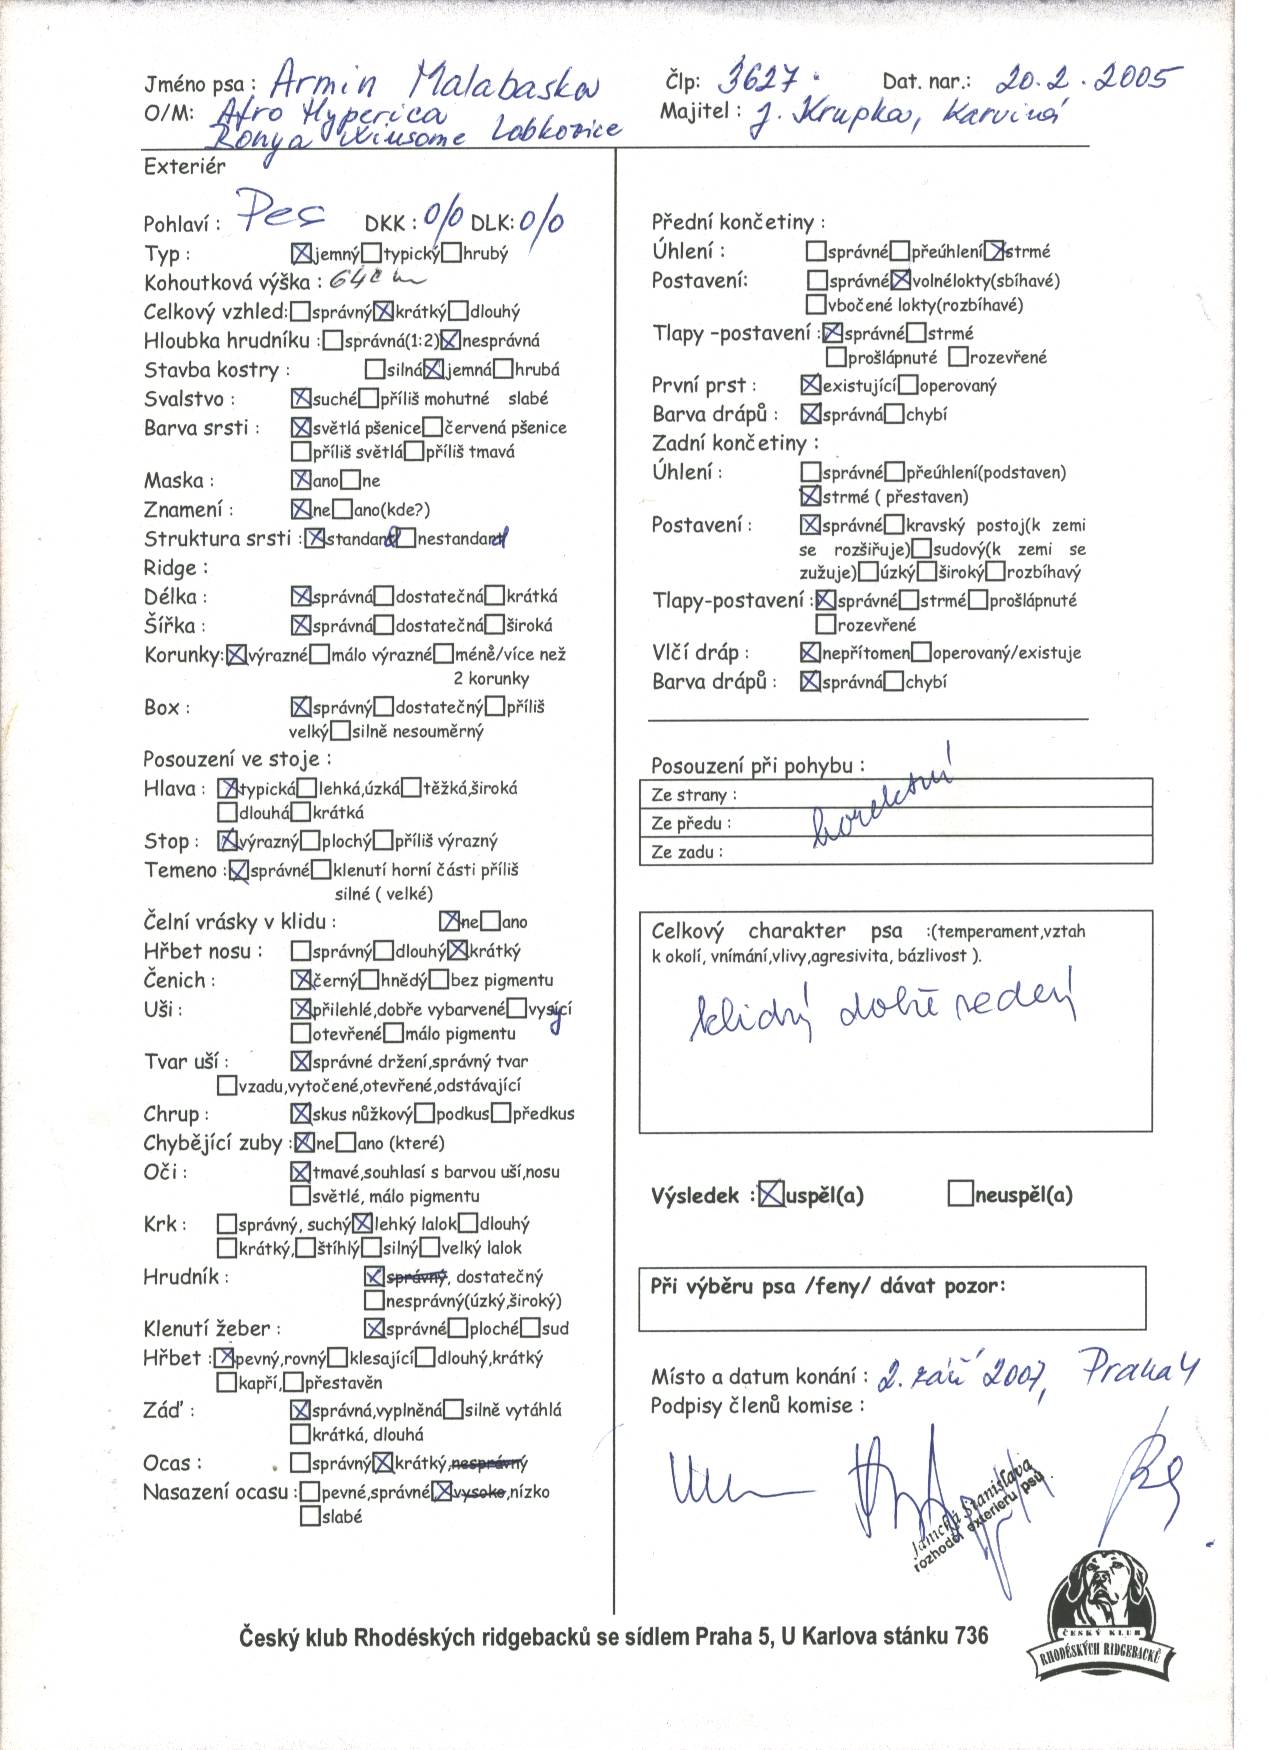 Jméno psa : Armin Malabaska
O/M: Afro Hyperica
Ronya Winsome Lobkovice
Člp: 3627.
Dat. nar.: 20.2.2005
Majitel : J. Krupka, Karviná
Exteriér
Pohlaví : Pes DKK : 0/0 DLK: 0/0
Typ : ☒jemný☐typický☐hrubý
Kohoutková výška : 64cm
Celkový vzhled:☐správný☒krátký☐dlouhý
Hloubka hrudníku :☐správná(1:2)☒nesprávná
Stavba kostry : ☐silná☒jemná☐hrubá
Svalstvo : ☒suché☐příliš mohutné slabé
Barva srsti : ☒světlá pšenice☐červená pšenice
☐příliš světlá☐příliš tmavá
Maska : ☒ano☐ne
Znamení : ☒ne☐ano(kde?)
Struktura srsti :☒standard☐nestandard
Ridge :
Délka : ☒správná☐dostatečná☐krátká
Šířka : ☒správná☐dostatečná☐široká
Korunky:☒výrazné☐málo výrazné☐méně/více než
2 korunky
Box : ☒správný☐dostatečný☐příliš
velký☐silně nesouměrný
Posouzení ve stoje :
Hlava : ☒typická☐lehká,úzká☐těžká,široká
☐dlouhá☐krátká
Stop : ☒výrazný☐plochý☐příliš výrazný
Temeno :☒správné☐klenutí horní části příliš
silné ( velké)
Čelní vrásky v klidu : ☒ne☐ano
Hřbet nosu : ☐správný☐dlouhý☒krátký
Čenich : ☒černý☐hnědý☐bez pigmentu
Uši : ☒přilehlé,dobře vybarvené☐vysící
☐otevřené☐málo pigmentu
Tvar uší : ☒správné držení,správný tvar
☐vzadu,vytočené,otevřené,odstávající
Chrup : ☒skus nůžkový☐podkus☐předkus
Chybějící zuby :☒ne☐ano (které)
Oči : ☒tmavé,souhlasí s barvou uší,nosu
☐světlé, málo pigmentu
Krk : ☐správný, suchý☒lehký lalok☐dlouhý
☐krátký,☐štíhlý☐silný☐velký lalok
Hrudník : ☒správný, dostatečný
☐nesprávný(úzký,široký)
Klenutí žeber : ☒správné☐ploché☐sud
Hřbet :☒pevný,rovný☐klesající☐dlouhý,krátký
☐kapří,☐přestavěn
Záď : ☒správná,vyplněná☐silně vytáhlá
☐krátká, dlouhá
Ocas : ☐správný☒krátký,nesprávný
Nasazení ocasu :☐pevné,správné☒vysoke,nízko
☐slabé
Přední končetiny :
Úhlení : ☐správné☐přeúhlení☒strmé
Postavení: ☐správné☒volnélokty(sbíhavé)
☐vbočené lokty(rozbíhavé)
Tlapy -postavení :☒správné☐strmé
☐prošlápnuté ☐rozevřené
První prst : ☒existující☐operovaný
Barva drápů : ☒správná☐chybí
Zadní končetiny :
Úhlení : ☐správné☐přeúhlení(podstaven)
☒strmé ( přestaven)
Postavení : ☒správné☐kravský postoj(k zemi
se rozšiřuje)☐sudový(k zemi se
zužuje)☐úzký☐široký☐rozbíhavý
Tlapy-postavení :☒správné☐strmé☐prošlápnuté
☐rozevřené
Vlčí dráp : ☒nepřítomen☐operovaný/existuje
Barva drápů : ☒správná☐chybí
Posouzení při pohybu :
Ze strany :
Ze předu : korektní
Ze zadu :
Celkový charakter psa :(temperament,vztah
k okolí, vnímání,vlivy,agresivita, bázlivost ).
klidný dobře vedený
Výsledek :☒uspěl(a) ☐neuspěl(a)
Při výběru psa /feny/ dávat pozor:
Místo a datum konání : 2. září 2007, Praha 4
Podpisy členů komise :
Janická Stanislava
rozhodčí exterieru psů
Český klub Rhodéských ridgebacků se sídlem Praha 5, U Karlova stánku 736
ČESKÝ KLUB
RHODÉSKÝCH RIDGEBACKŮ